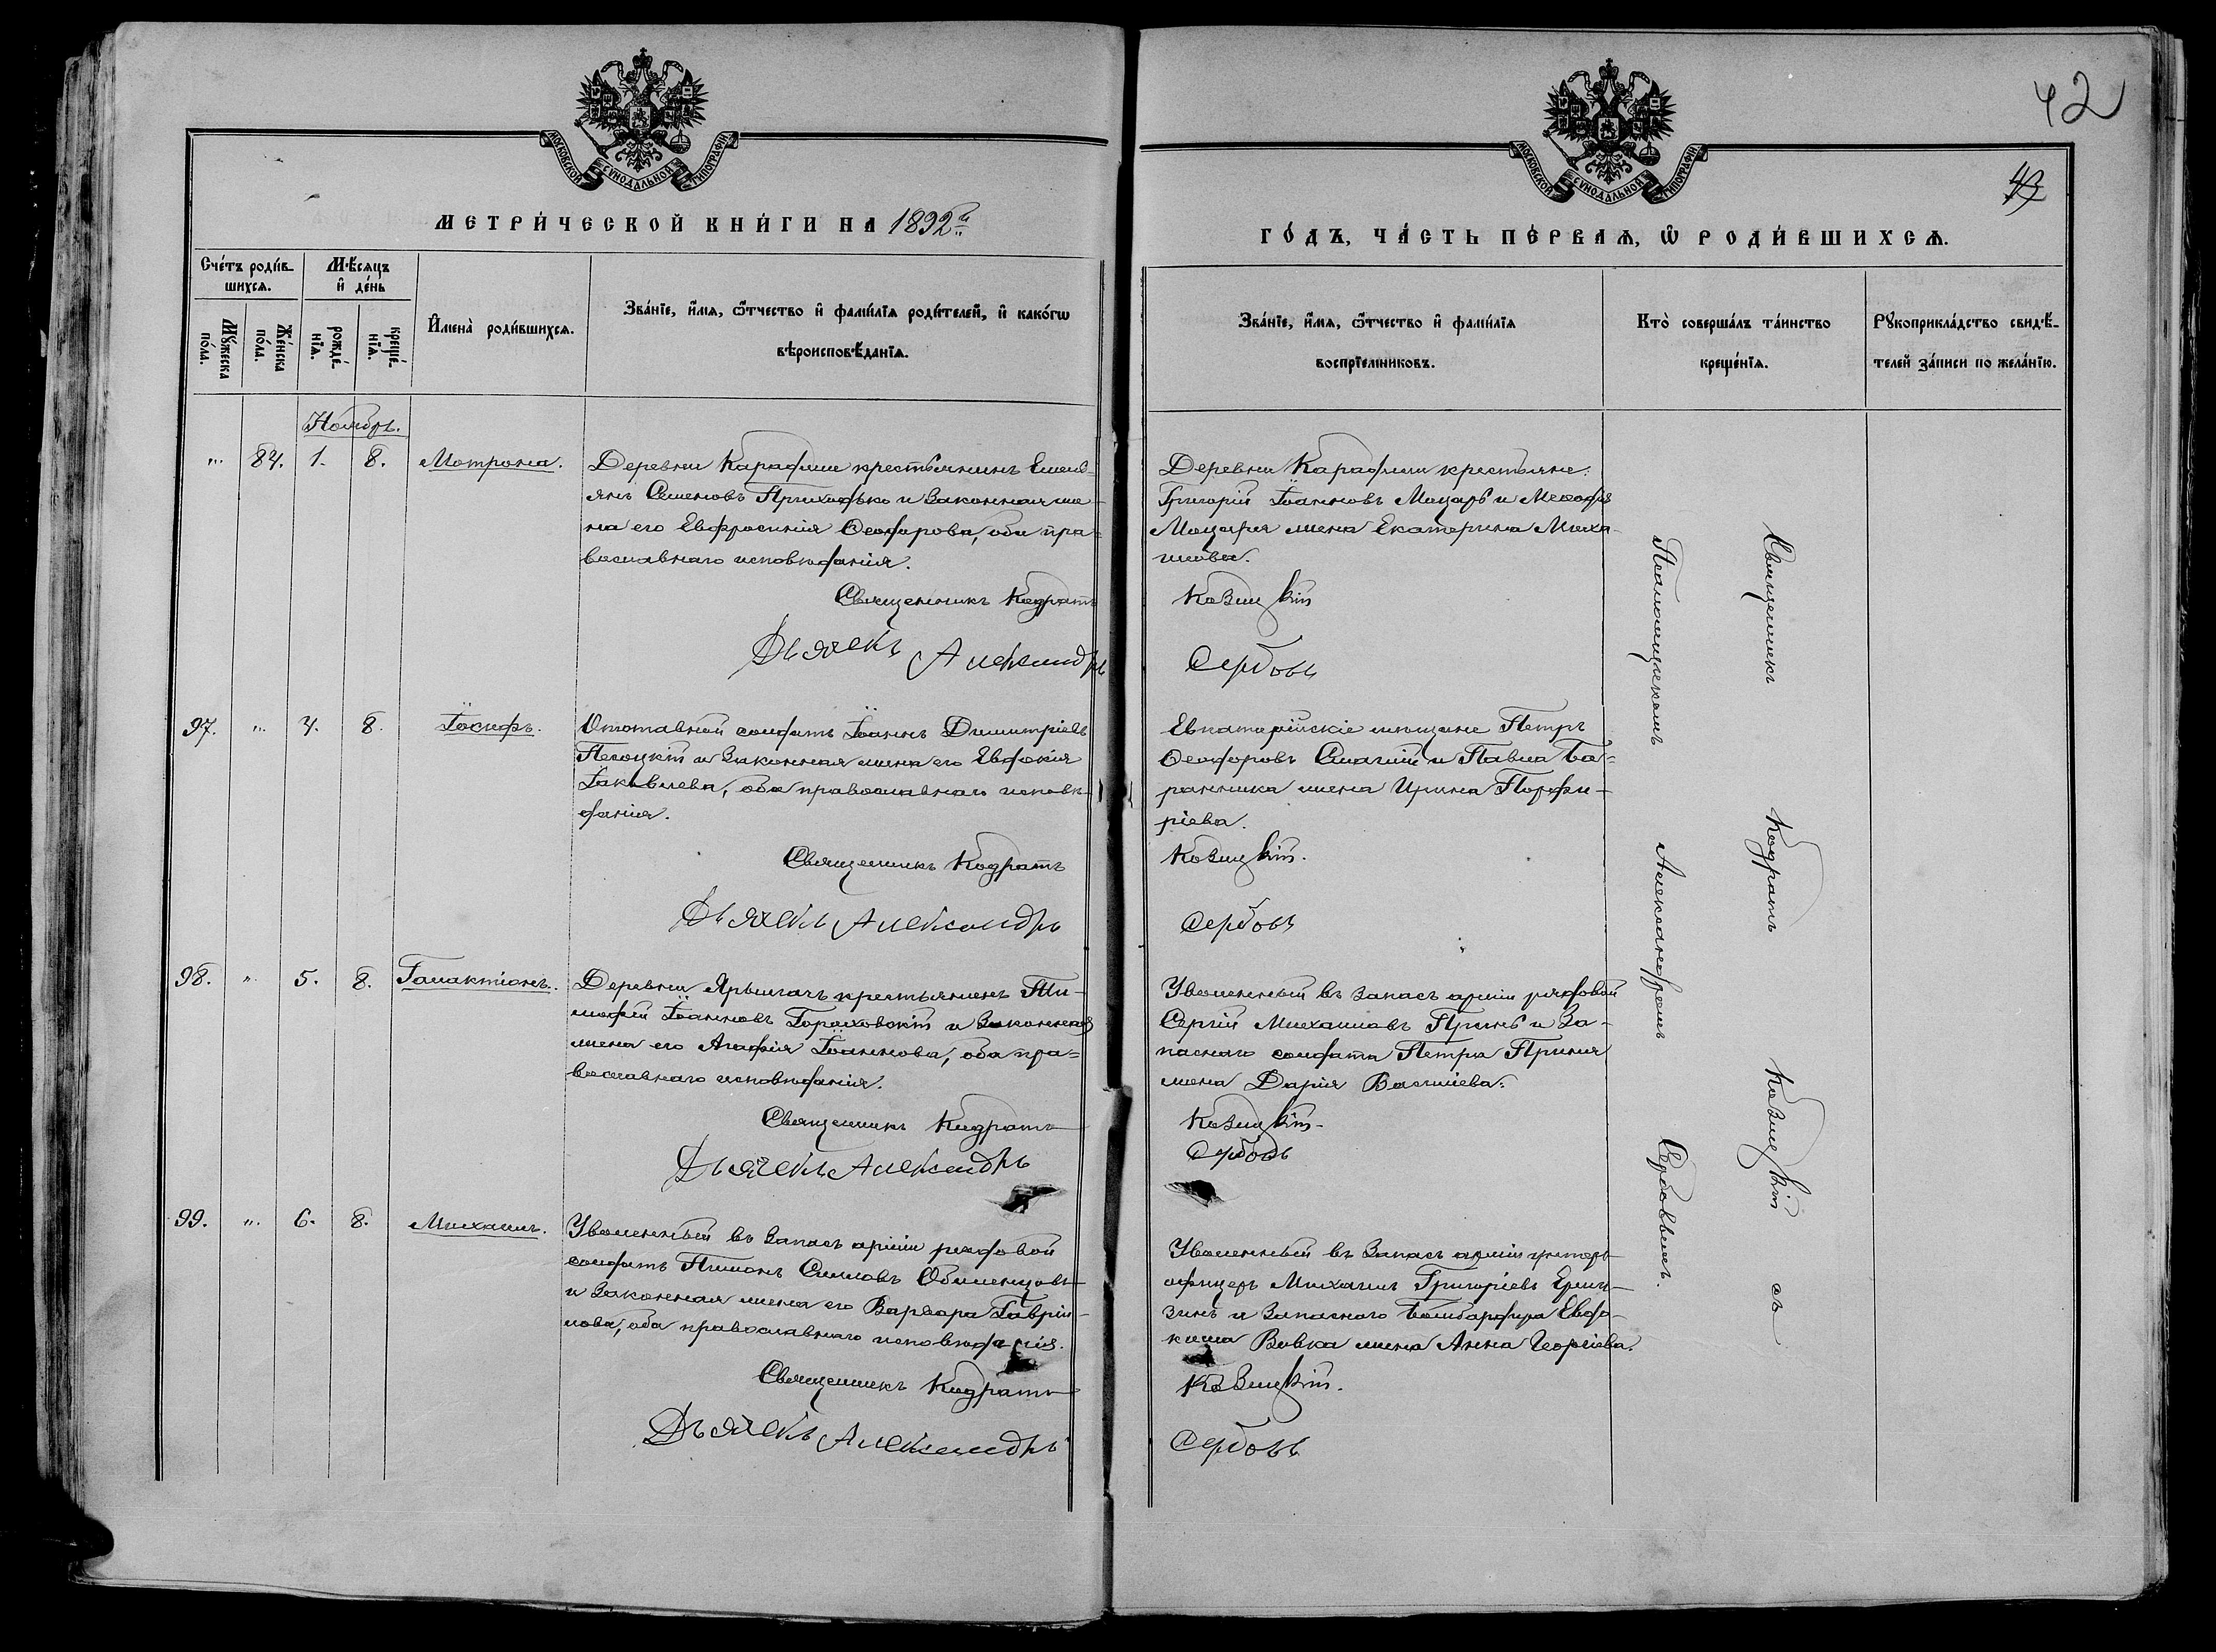 42
43
МОСКОВСКОЙ СѴНОДАЛЬНОЙ ТИПОГРАФІИ
МОСКОВСКОЙ СѴНОДАЛЬНОЙ ТИПОГРАФІИ
МЕТРИ́ЧЕСКОЙ КНИ́ГИ НА 1892й
ГО́ДЪ, ЧА́СТЬ ПЕ́РВАѦ, Ѡ҆ РОДИ́ВШИХСѦ.
Сче́тъ роди́в-
шихсѧ.
Мꙋ́жеска по́ла.
Же́нска по́ла.
Мѣ́сѧцъ
и҆ де́нь
рожде́-
нїѧ.
креще́-
нїѧ.
И҆мена̀ роди́вшихсѧ.
Зва́нїе, и҆́мѧ, ѻ҆́тчество и҆ фами́лїѧ роди́телей, и҆ како́гѡ
вѣроисповѣ́данїѧ.
Зва́нїе, и҆́мѧ, ѻ҆́тчество и҆ фами́лїѧ
воспрїе́мниковъ.
Кто̀ соверша́лъ та́инство
креще́нїѧ.
Рꙋкоприкла́дство свидѣ́-
телей за́писи по жела́нїю.
Ноябрь.
" 84. 1. 8. Мотрона.
Деревни Карафили крестьянинъ Емель-
янъ Семеновъ Приходько и законная же-
на его Евфросинія Ѳеодорова, оба пра-
вославнаго исповѣданія.
Священникъ Кодратъ
Дьячекъ Александръ
Деревни Карафили крестьяне:
Григорій Іоанновъ Моцарь и
Моцаря жена Екатерина Миха-
илова.
Козицкій
Сербовъ
97. " 4. 8. Іосифъ.
Отставной солдатъ Іоаннъ Димитріевъ
Песоцкій и законная жена его Евдокія
Іаковлева, оба православнаго исповѣ-
данія.
Священникъ Кодратъ
Дьячекъ Александръ
Евпаторійскіе мѣщане Петръ
Ѳеодоровъ и Павла Ба-
ранника жена Ирина Порфи-
ріева.
Козицкій.
Сербовъ
98. " 5. 8. Галактіонъ.
Деревни Ярылгачъ крестьянинъ Ти-
мофей Іоанновъ Гороховскій и законная
жена его Агафія Іоаннова, оба пра-
вославнаго исповѣданія.
Священникъ Кодратъ
Дьячекъ Александръ
Уволенный въ запасъ арміи рядовой
Сергій Михаиловъ Принь и за-
паснаго солдата Петра Приня
жена Дарія Василіева.
Козицкій
Сербовъ
99. " 6. 8. Михаилъ.
Уволенный въ запасъ арміи рядовой
солдатъ Пимонъ
и законная жена его Варвара Гаврии-
лова, оба православнаго исповѣданія.
Священникъ Кодратъ
Дьячекъ Александръ
Уволенный въ запасъ арміи унтеръ-
офицеръ Михаилъ Григоріевъ
и запаснаго бомбардира Евдо-
кима Вовка жена Анна Георгіева.
Козицкій.
Сербовъ
Священникъ Кодратъ Козицкій съ
Псаломщикомъ Александромъ Сербовымъ.